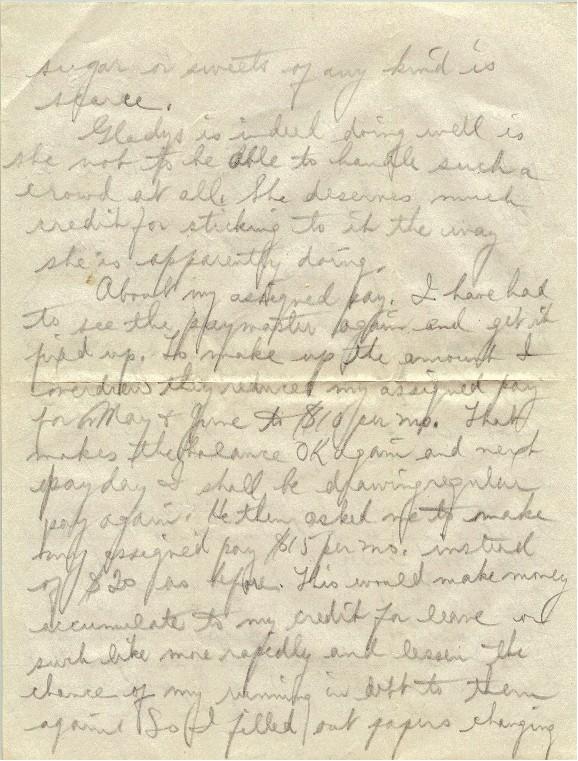 sugar or sweets of any kind is
scarce.
Gladys is indeed doing well is
she not to be able to handle such a
crowd at all. She deserves much
credit for sticking to it the way
she is apparently doing.
About my assigned pay. I have had
to see the paymaster again and get it
fixed up. To make up the amount I
overdrew they reduced my assigned pay
for May & June to $10 per mo. That
makes the balance OK again and next
payday I shall be drawing regular
pay again. He then asked me to make
my assigned pay $15 per mo. instead
of $20 as before. This would make money
accumulate to my credit for leave or
such like more rapidly and lessen the
chance of my running in debt to them
again. So I filled out papers changing